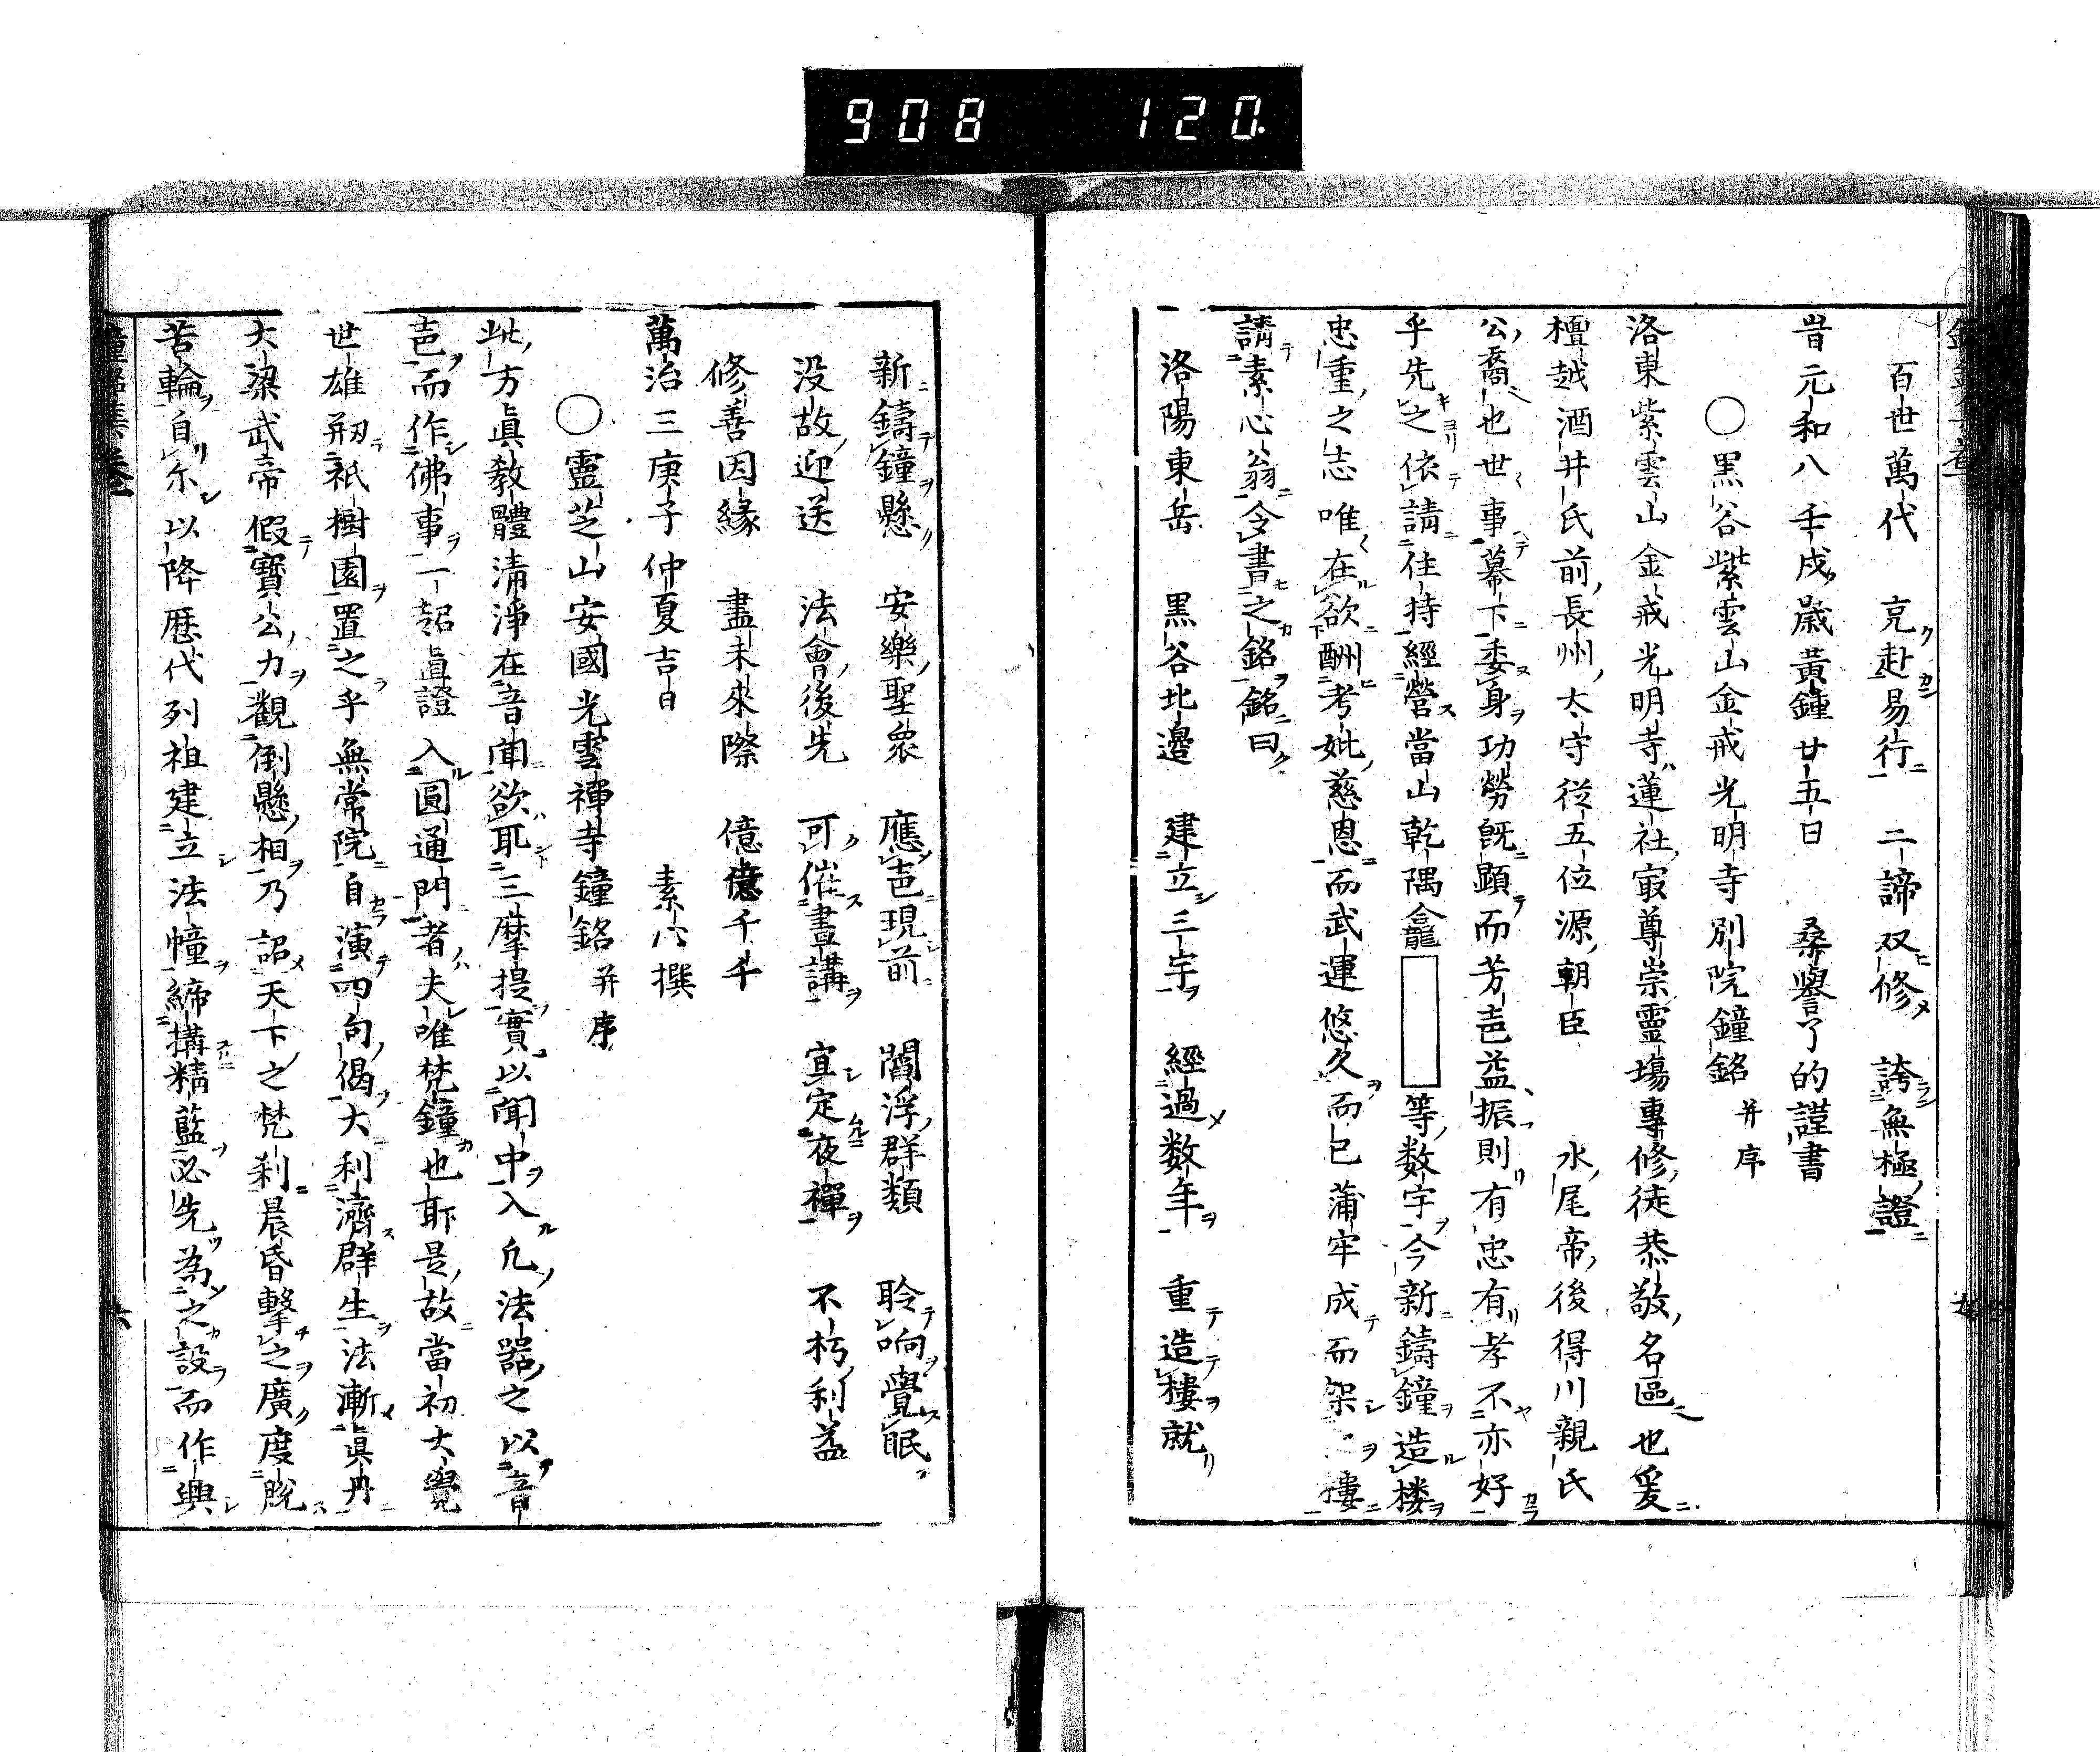 908 120
百世萬代 克赴易行 二諦双修 誇無極證
昔元和八壬戌歳黃鐘廿五日 桑譽了的謹書
○黑谷紫雲山金戒光明寺別院鐘銘 并序
洛東紫雲山金戒光明寺蓮社最尊崇靈場專修徒恭敬名區也爰
檀越酒井氏前長州太守從五位源朝臣 水尾帝後得川親氏
公裔也世事幕下委身功勞既顯而芳声益振則有忠有孝不亦好
乎先之依請住持經營當山乾隅龕 等数宇今新鑄鐘造楼
忠重之志唯在欲酬考妣慈恩而武運悠久而已蒲牢成而架樓
請素心翁令書之銘銘曰
洛陽東岳 黑谷北邊 建立三宇 經過数年 重造樓就
新鑄鐘懸 安樂聖衆 應声現前 閻浮群類 聆响覺眠
没故迎送 法會後先 可催晝講 宜定夜禪 不朽利益
修善因緣 盡未來際 億億千千
萬治三庚子仲夏吉日 素心撰
○靈芝山安國光雲禪寺鐘銘 并序
此方眞教體清淨在音聞欲取三摩提實以聞中入凡法器之以音
声而作佛事一韶眞證入圓通門者夫唯梵鐘也耶是故當初大覺
世雄剏祇樹園置之乎無常院自演四句偈大利濟群生法漸眞丹
大梁武帝假寶公力觀倒懸相乃詔天下之梵刹晨昏擊之廣度脫
苦輪自尒以降歷代列祖建立法幢締搆精藍必先為之設而作興
鐘銘集卷一 六